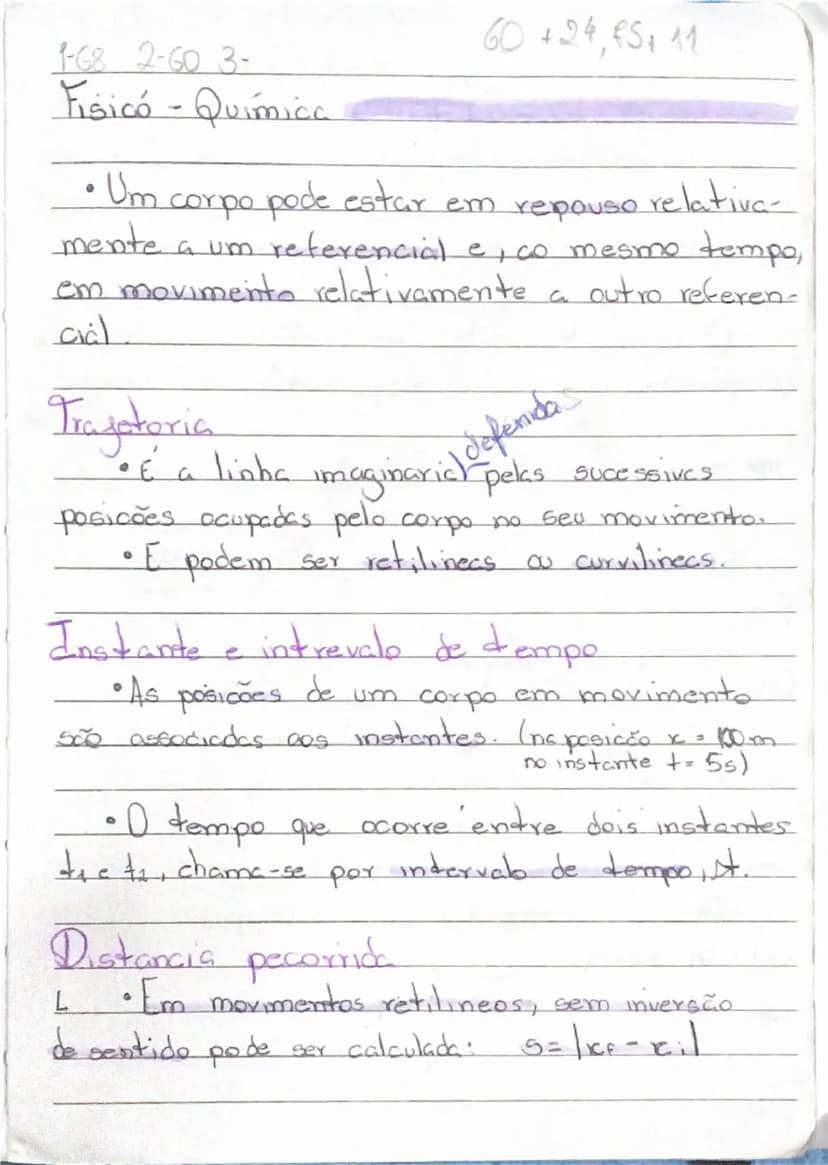 60 + 24, 11
1-68 2-60 3-
Fisicó - Química
• Um corpo pode estar em repouso relativa-
mente a um referencial e, ao mesmo tempo,
em movimento relativamente a outro referen-
cial.
Trajetoria
defenidas
• É a linha imaginaria pelas sucessivas
posicões ocupadas pelo corpo no seu movimento.
• E podem ser retilineas ou curvilineas.
Instante e intrevalo de tempo
• As posicões de um corpo em movimento
são associadas aos instantes. (na posicão x = 100 m
no instante t = 5s)
• O tempo que ocorre entre dois instantes
t1 e t2, chama-se por intervalo de tempo, Δt.
Distancia pecorrida
L • Em movimentos retilineos, sem inversão
de sentido pode ser calculada: s = |xF - xi|